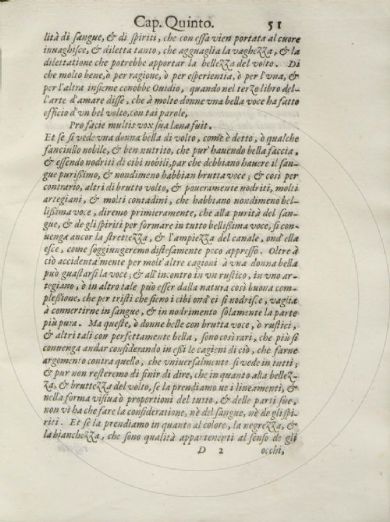 Cap. Quinto. 51
lità di sangue, & di spiriti, che con essa vien portata al cuore
inuaghisce, & diletta tanto, che agguaglia la vaghezza, & la
dilettatione che potrebbe apportar la bellezza del volto. Di
che molto bene, ò per ragione, ò per esperientia, ò per l'vna, &
per l'altra insieme conobbe Ouidio, quando nel terzo libro del-
l'arte d'amare disse, che à molte donne vna bella voce ha fatto
officio d'vn bel volto, con tai parole,
Pro facie multis vox sua læna fuit.
Et se si vede vna donna bella di volto, come è detto, ò qualche
fanciullo nobile, & ben nutrito, che pur' hauendo bella faccia,
& essendo nodriti di cibi nobili, par che debbiano hauere il san-
gue purissimo, & nondimeno habbian brutta voce; & così per
contrario, altri di brutto volto, & poueramente nodriti, molti
artegiani, & molti contadini, che habbiano nondimeno bel-
lissima voce, diremo primieramente, che alla purità del san-
gue, & de gli spiriti per formare in tutto bellissima voce, si con-
uenga ancor la strettezza, & l'ampiezza del canale, ond'ella
esce, come soggiungeremo distesamente poco appresso. Oltre à
ciò accidentamente per molt'altre cagioni à vna donna bella
può guastarsi la voce; & all'incontro in vn rustico, in vno ar-
tegiano, ò in altro tale può esser dalla natura così buona com-
plessione, che per tristi che sieno i cibi ond'ei si nodrisce, vaglia
à conuertirne in sangue, & in nodrimento solamente la parte
più pura. Ma queste, ò donne belle con brutta voce, ò rustici,
& altri tali con perfettamente bella, sono così rari, che più si
conuenga andar considerando in essi le cagioni di ciò, che farne
argomento contra quello, che vniuersalmente si vede in tutti;
& pur non resteremo di finir di dire, che in quanto alla bellez-
za, & bruttezza del volto, se la prendiamo ne i lineamenti, &
nella forma visiua ò proportioni del tutto, & delle parti sue,
non vi ha che fare la consideratione, nè del sangue, nè de gli spi-
riti. Et se la prendiamo in quanto al colore, la negrezza, &
la bianchezza, che sono qualità appartenenti al senso de gli
D 2 occhi,